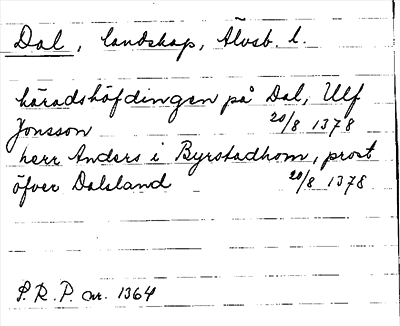 Dal, landskap, Älvsb. l.
häradshöfdingen på Dal, Ulf
Jonsson 20/8 1378
herr Anders i Byrstadhom, prost
öfver Dalsland 20/8 1378
S. R. P. nr. 1364